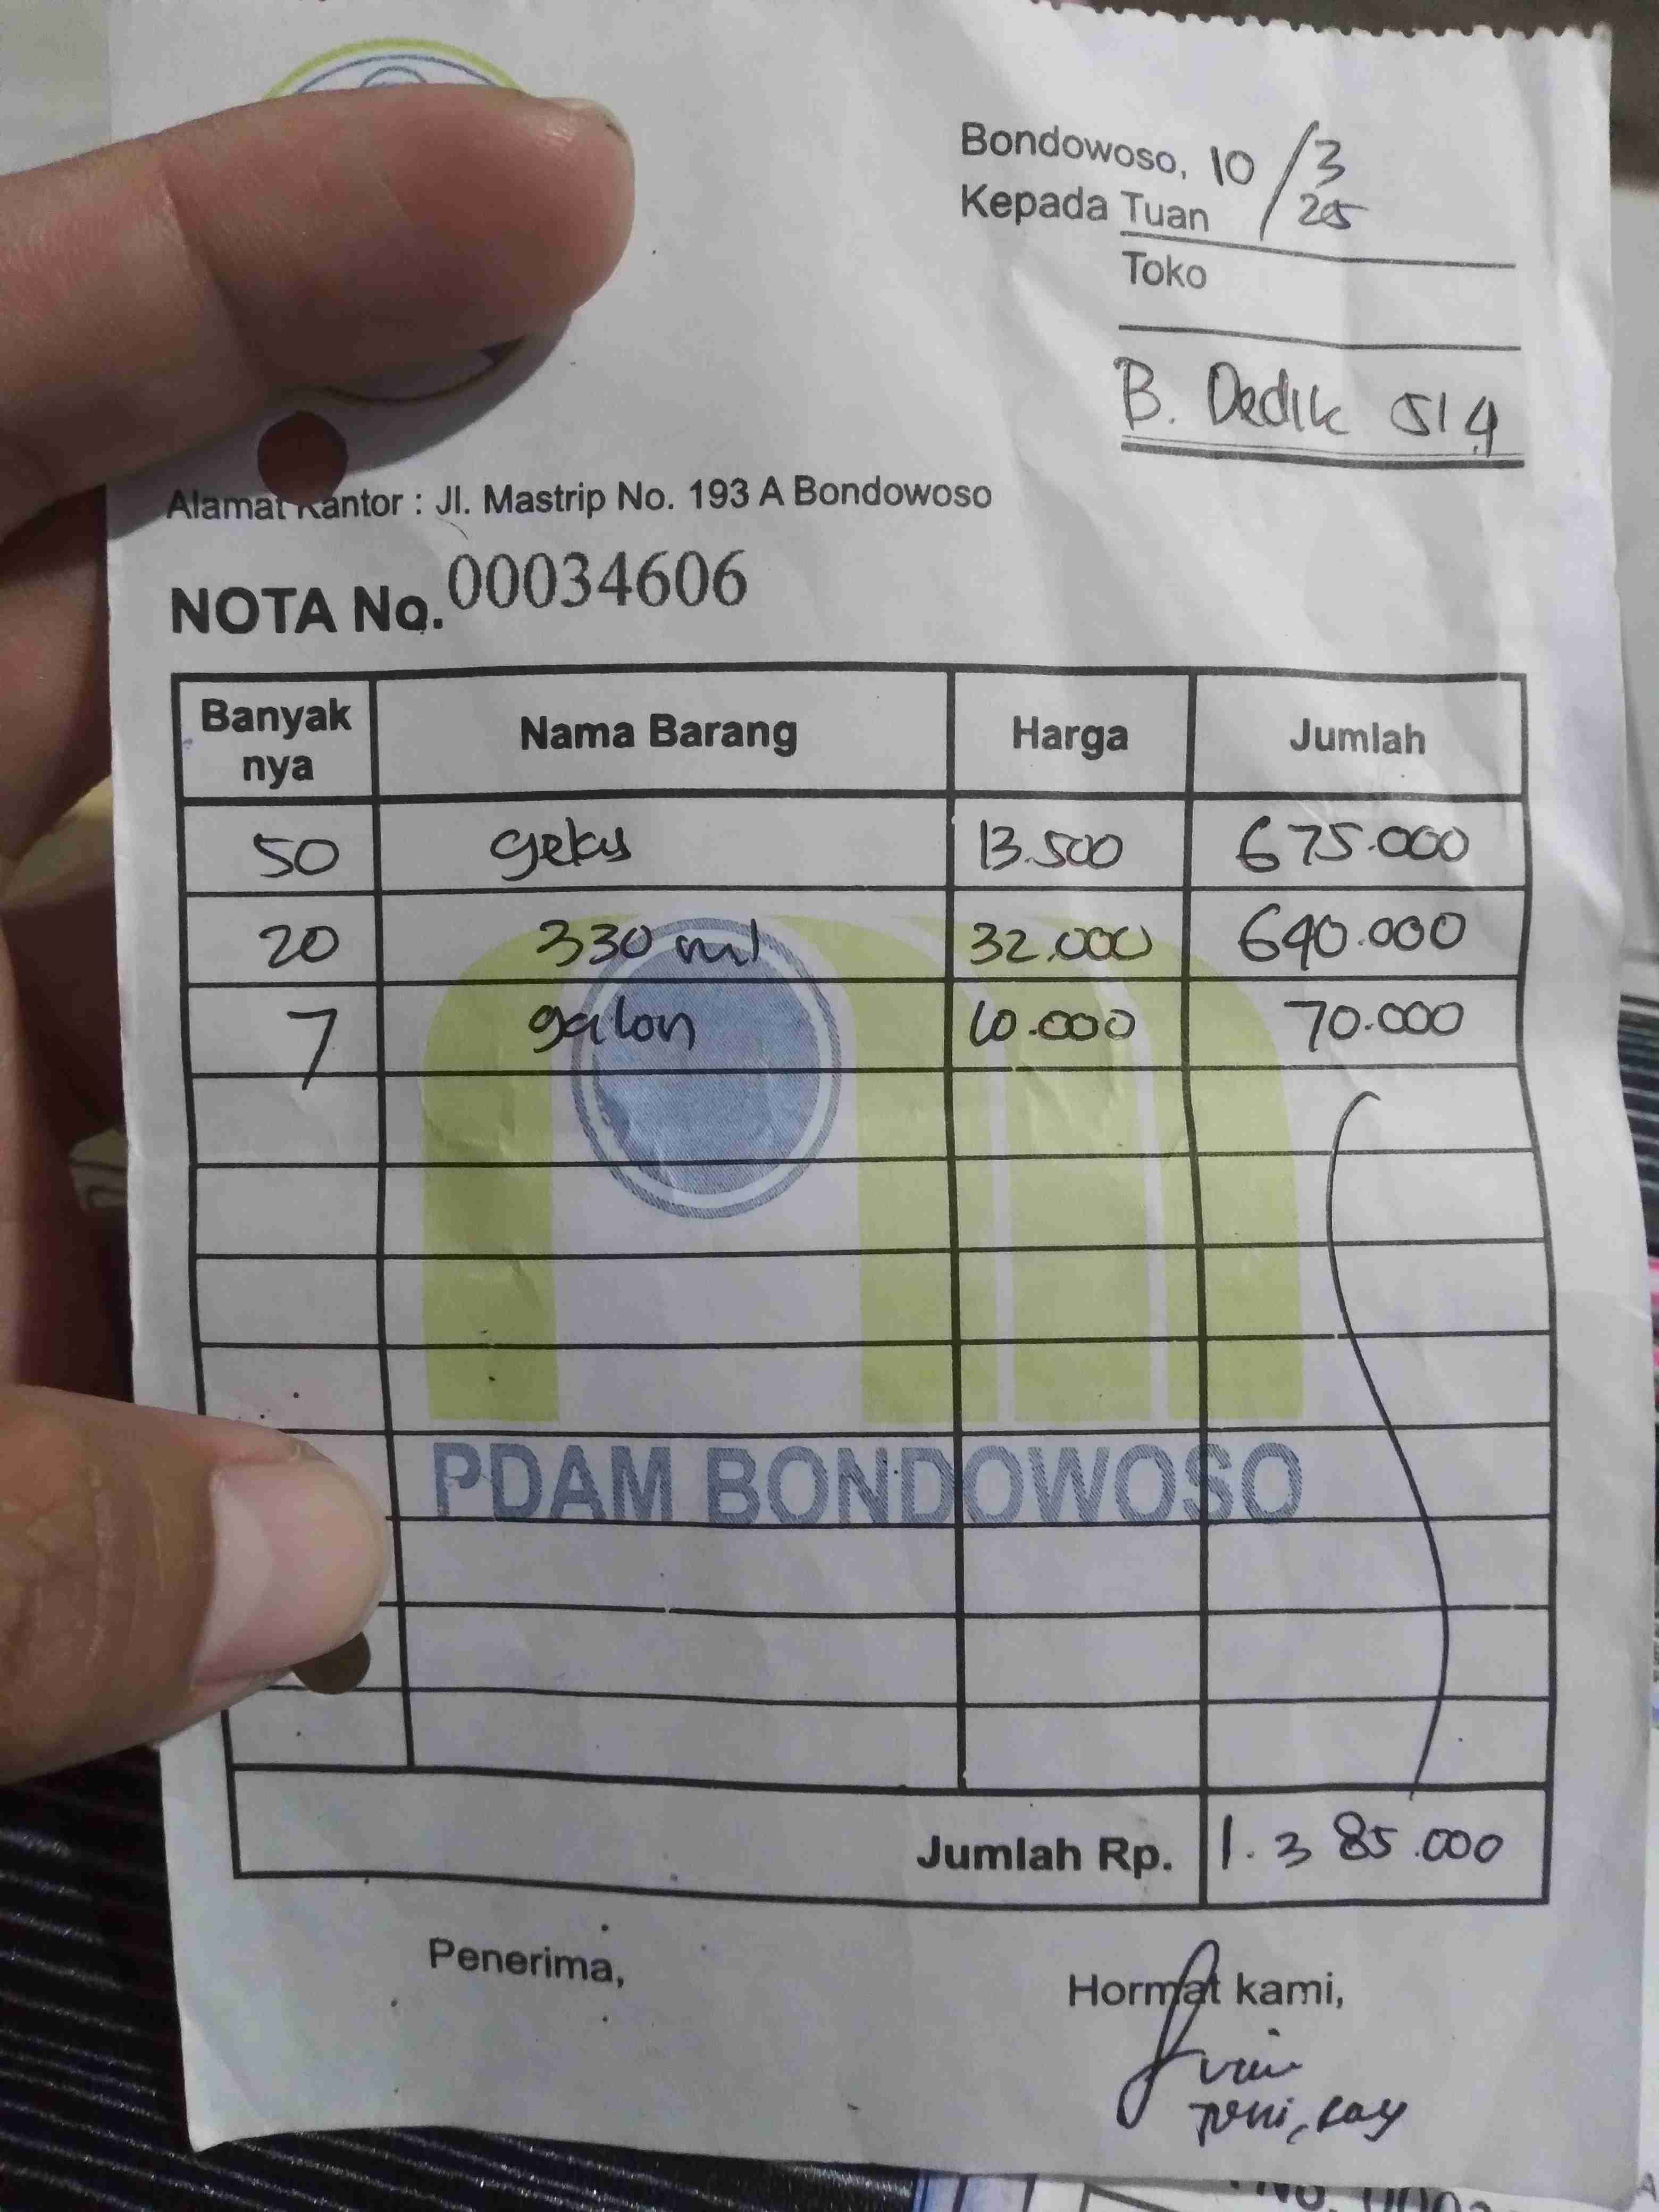 Bondowoso, 10/3
Kepada Tuan 205
Toko
B. Dedik 514
Alamat Kantor : Jl. Mastrip No. 193 A Bondowoso
NOTA No. 00034606
Banyak nya Nama Barang Harga Jumlah
50 gelas 13.500 675.000
20 330 ml 32.000 640.000
7 galon 10.000 70.000
PDAM BONDOWOSO
Jumlah Rp. 1.385.000
Penerima,
Hormat kami,